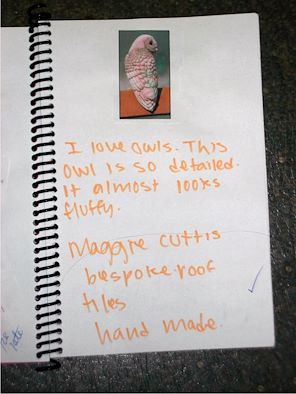 I love owls. This
owl is so detailed.
It almost looks
fluffy.
Maggie cuttis
bespoke roof
tiles
hand made.